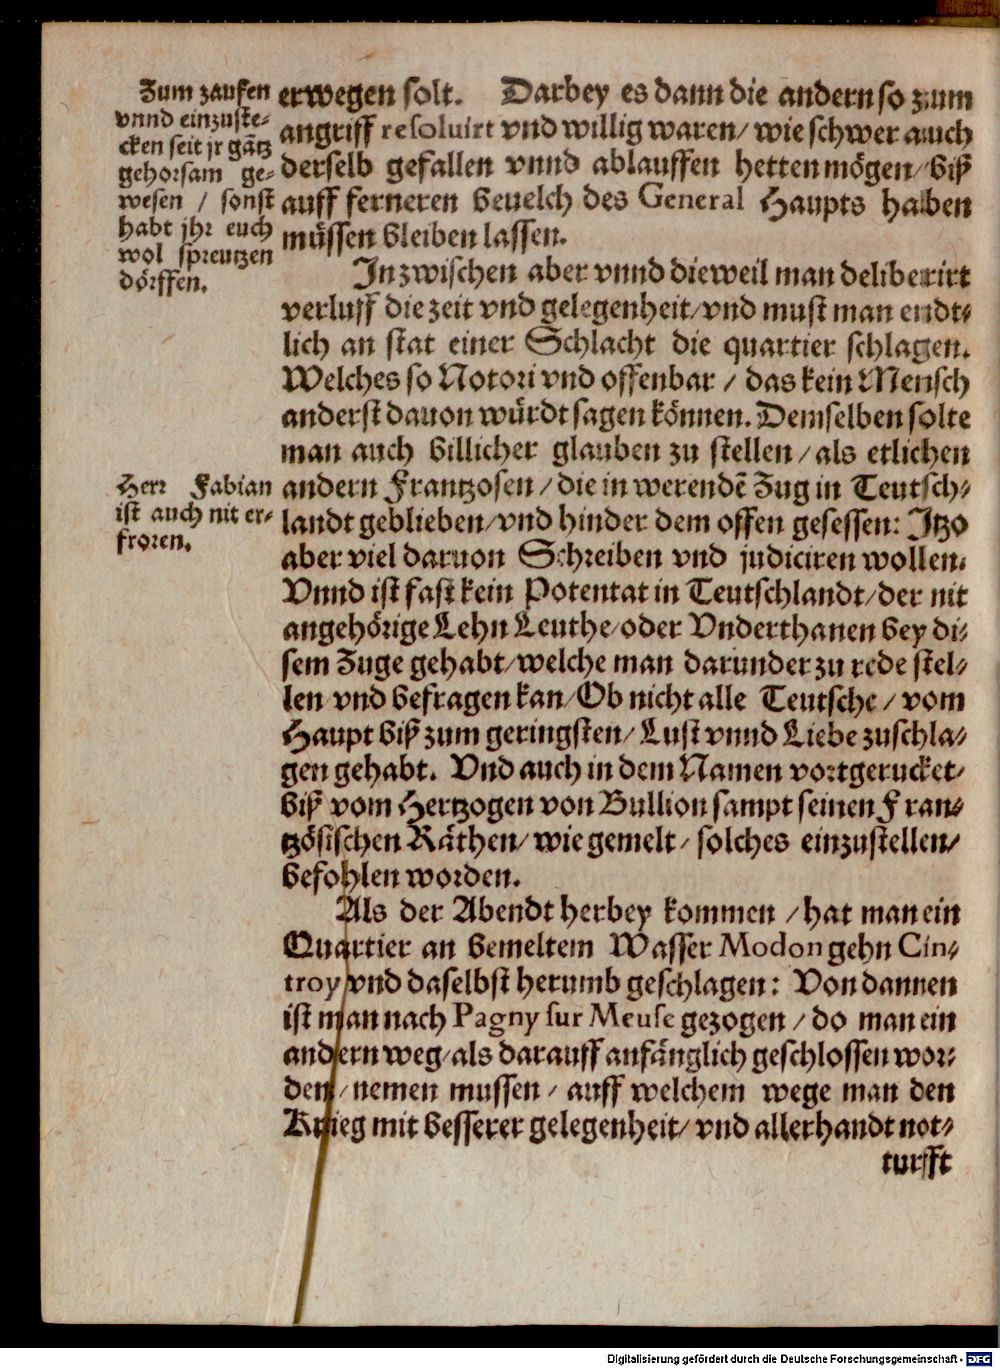 Zum zaufen
vnnd einzuste-
cken seit jr gātz
gehorsam ge-
wesen / sonst
habt jhr euch
wol spreutzen
dörffen.
erwegen solt. Darbey es dann die andern so zum
angriff resoluirt vnd willig waren/ wie schwer auch
derselb gefallen vnnd ablauffen hetten mögen/ biß
auff ferneren beuelch des General Haupts haben
müssen bleiben lassen.
Inzwischen aber vnnd dieweil man deliberirt
verluff die zeit vnd gelegenheit/ vnd must man endt-
lich an stat einer Schlacht die quartier schlagen.
Welches so Notori vnd offenbar / das kein Mensch
anderst dauon würdt sagen können. Demselben solte
man auch billicher glauben zu stellen / als etlichen
Herr Fabian
ist auch nit er-
froren.
andern Frantzosen / die in werendē Zug in Teutsch-
landt geblieben/ vnd hinder dem offen gesessen: Itzo
aber viel daruon Schreiben vnd judiciren wollen.
Vnnd ist fast kein Potentat in Teutschlandt/ der nit
angehörige Lehn Leuthe/ oder Vnderthanen bey di-
sem Zuge gehabt/ welche man darunder zu rede stel-
len vnd befragen kan/ Ob nicht alle Teutsche / vom
Haupt biß zum geringsten/ Lust vnnd Liebe zuschla-
gen gehabt. Vnd auch in dem Namen vortgerucket/
biß vom Hertzogen von Bullion sampt seinen Fran-
tzösischen Räthen/ wie gemelt / solches einzustellen/
befohlen worden.
Als der Abendt herbey kommen / hat man ein
Quartier an bemeltem Wasser Modon gehn Cin-
troy vnd daselbst herumb geschlagen: Von dannen
ist man nach Pagny sur Meuse gezogen / do man ein
andern weg/ als darauff anfänglich geschlossen wor-
den / nemen mussen / auff welchem wege man den
Krieg mit besserer gelegenheit/ vnd allerhandt not-
turfft
Digitalisierung gefördert durch die Deutsche Forschungsgemeinschaft - DFG